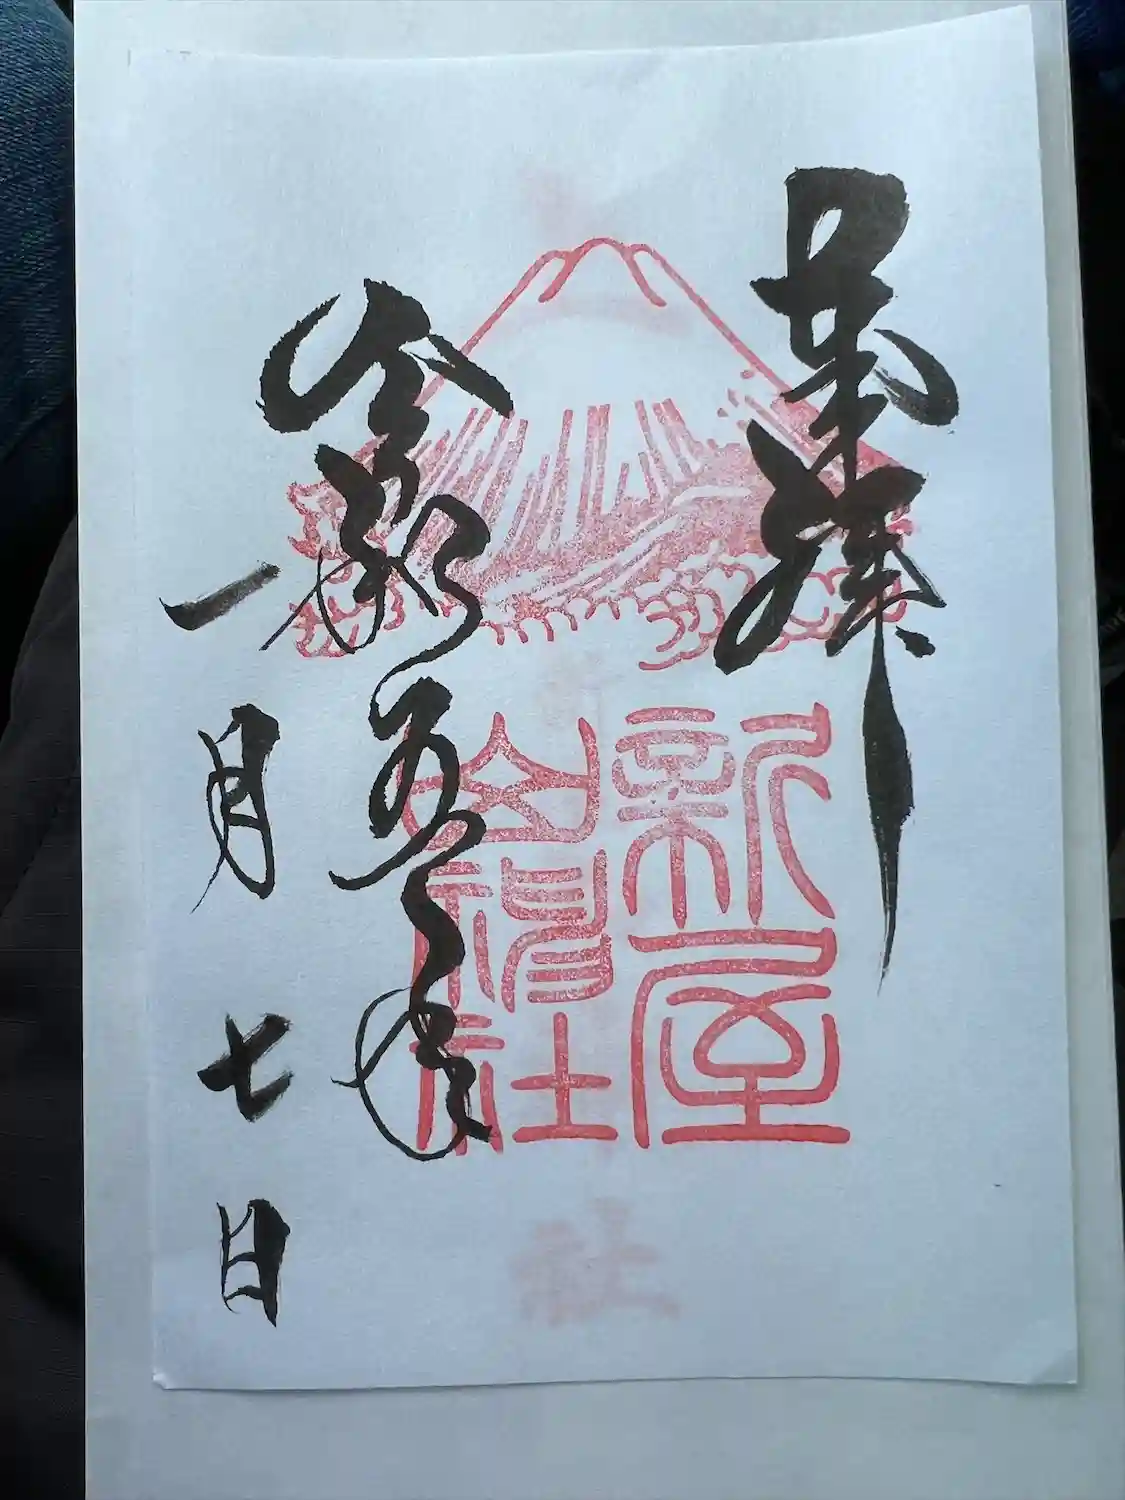 奉拝
新屋
山神社
令和五年
一月七日